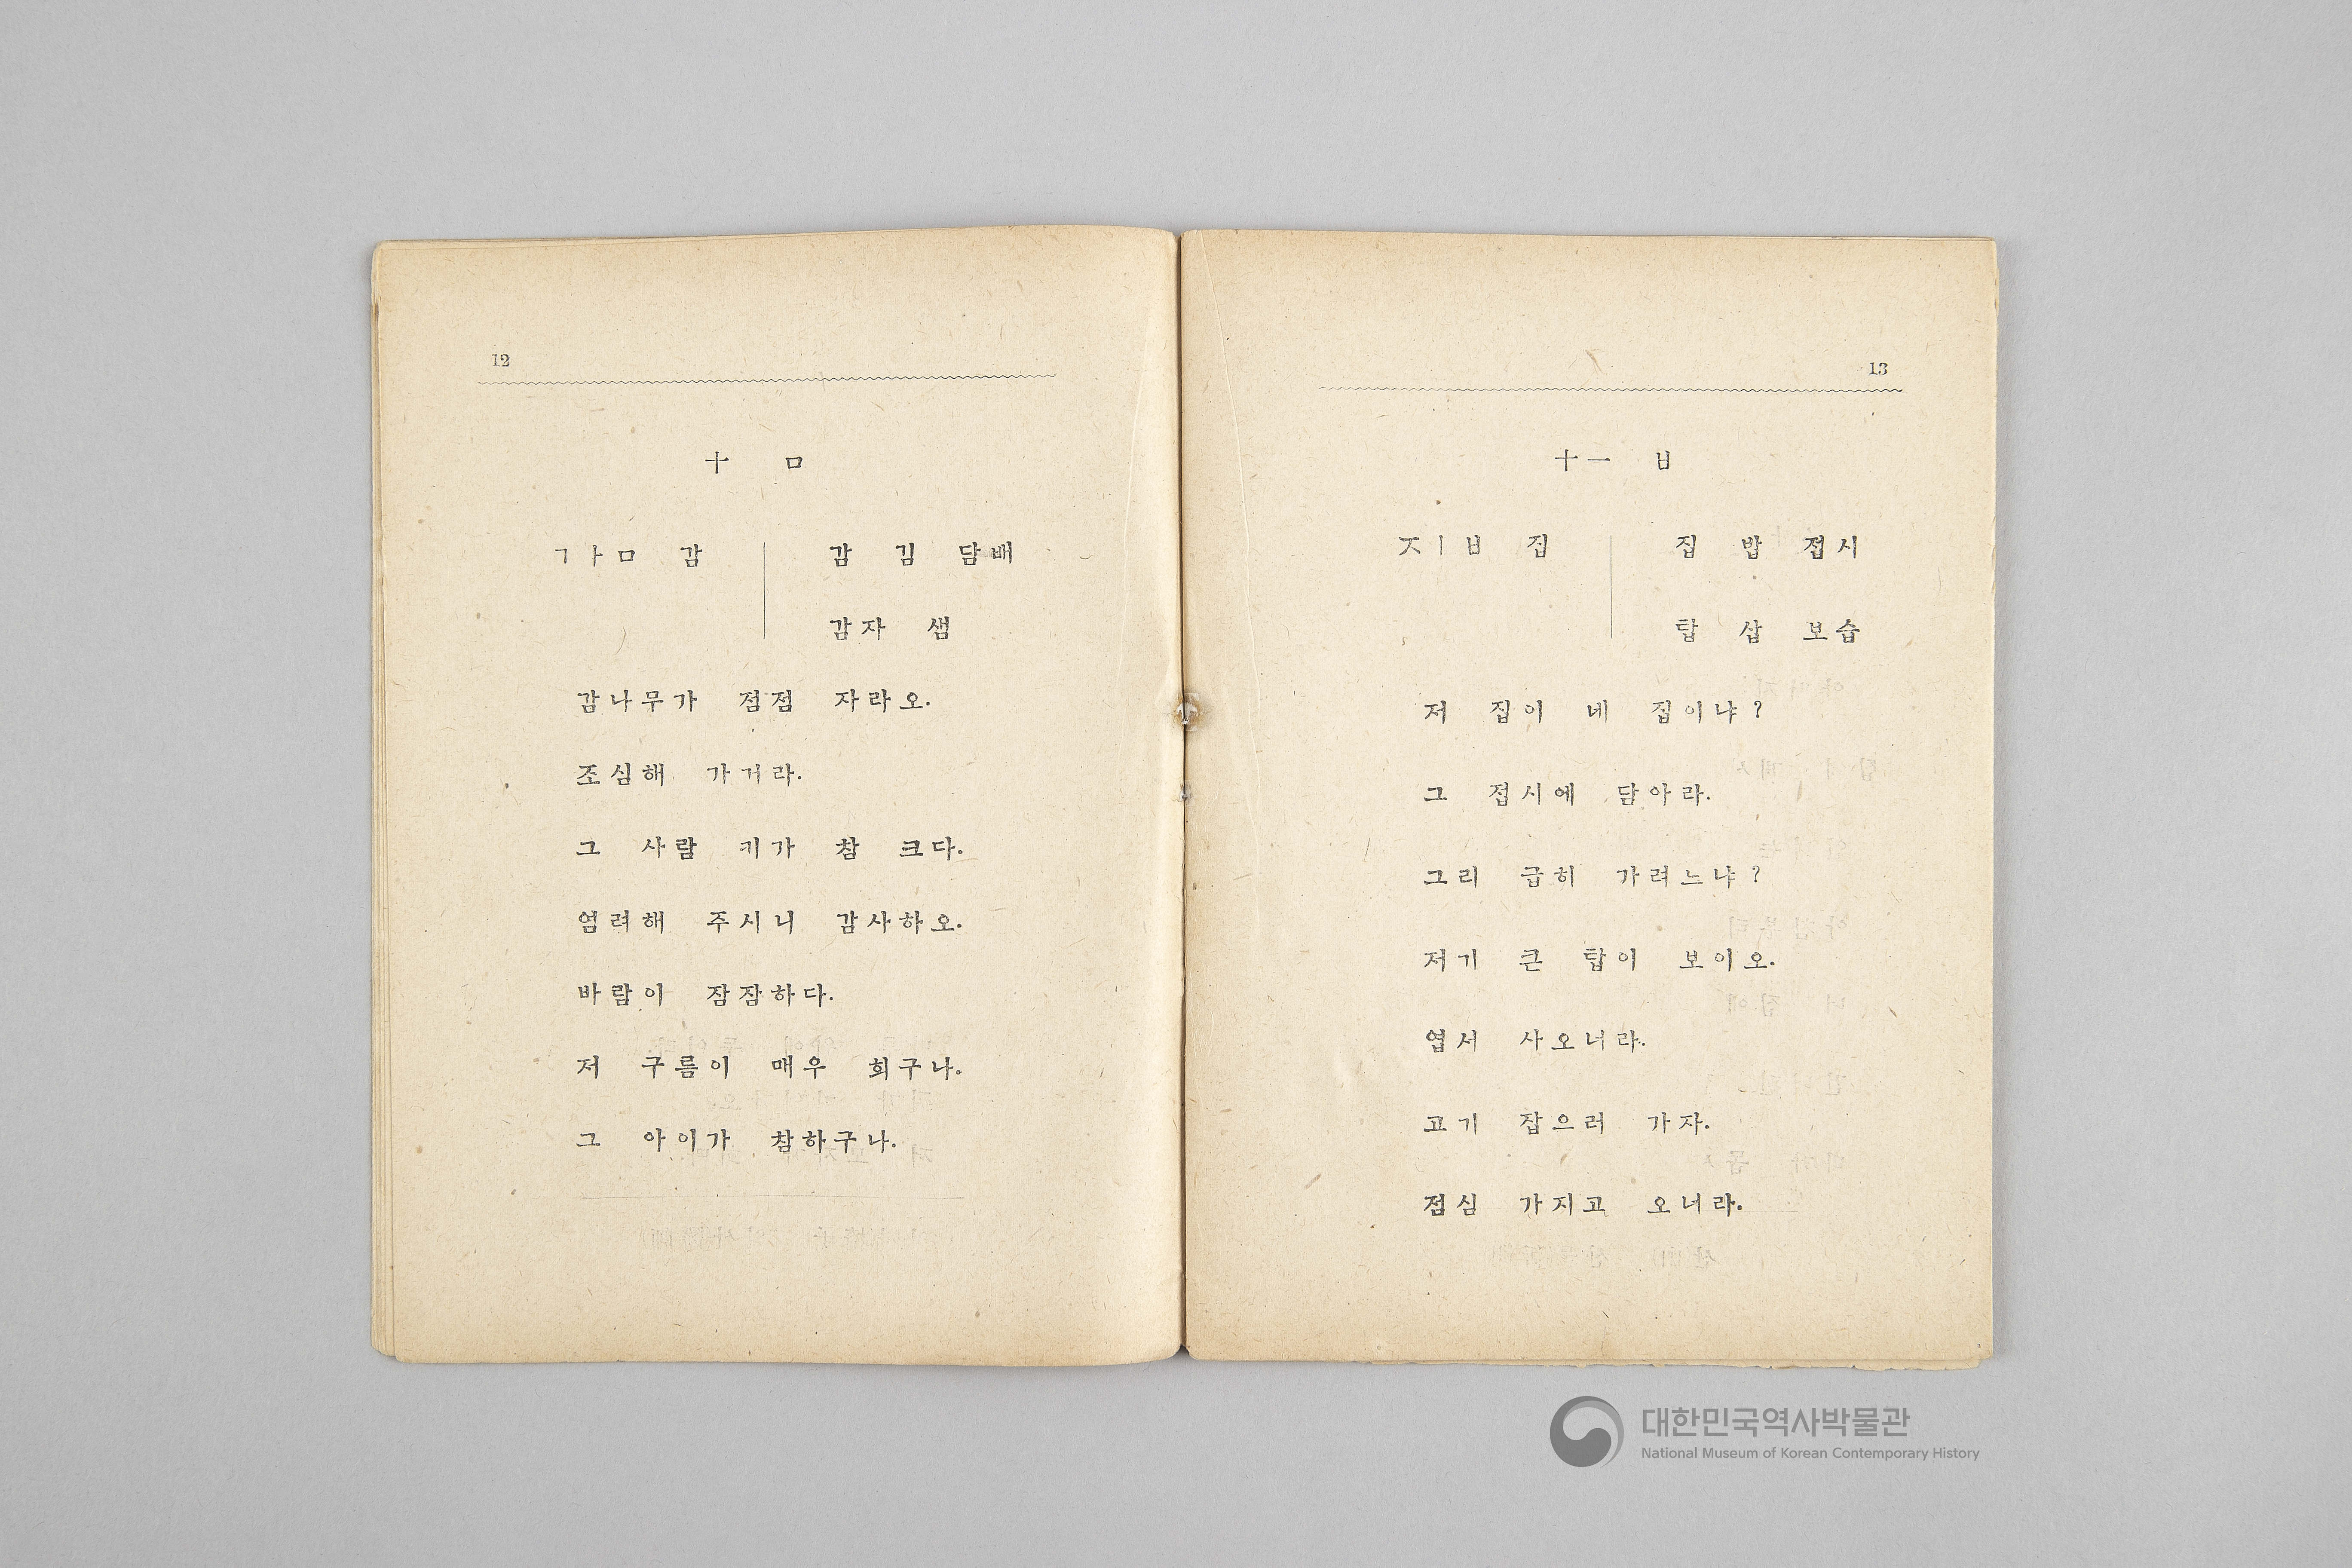 12
十 ㅁ
ㄱㅏㅁ 감
감 김 담배
감자 샘
감나무가 점점 자라오.
조심해 가거라.
그 사람 키가 참 크다.
염려해 주시니 감사하오.
바람이 잠잠하다.
저 구름이 매우 희구나.
그 아이가 참하구나.
13
十一 ㅂ
ㅈㅣㅂ 집
집 밥 접시
탑 삽 보습
저 집이 네 집이냐?
그 접시에 담아라.
그리 급히 가려느냐?
저기 큰 탑이 보이오.
엽서 사오너라.
고기 잡으러 가자.
점심 가지고 오너라.
대한민국역사박물관
National Museum of Korean Contemporary History